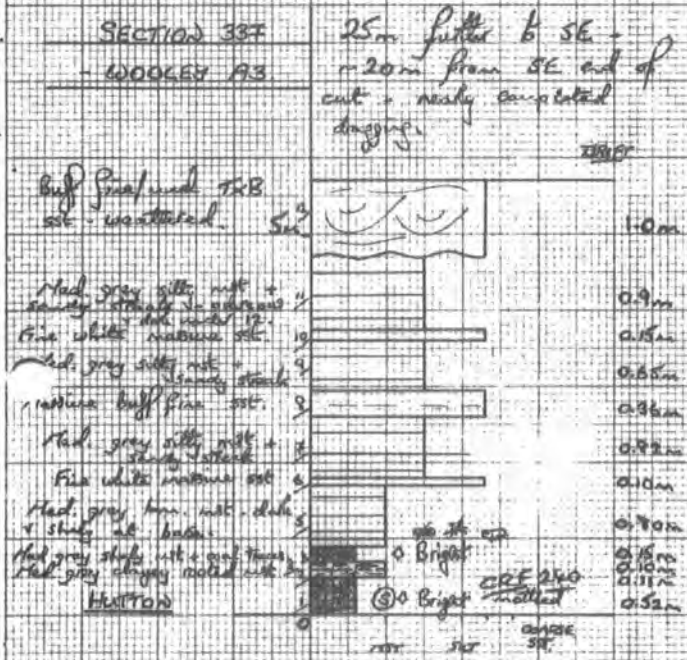 SECTION 337
- WOOLEY A3.
25m further to SE -
~20m from SE end of
cut - nearly completed
digging.
DRIFT
Buff fine/med TxB
sst - weathered.
5m
1.0m
Med grey silty mst +
sandy streaks
0.9m
Fine white massive sst.
10
0.15m
Med. grey silty mst +
sandy streaks
9
0.65m
massive buff fine sst.
8
0.36m
Med. grey silty mst +
sandy streaks
7
0.82m
Fine white massive sst
6
0.10m
Med. grey hom. mst - dark
& shaly at base.
5
0.70m
Med grey shaly mst + coal traces
Bright
0.15m
Med. grey clayey rooted mst
3
0.10m
0.11m
HUTTON
1
S Bright
CRF 240
mottled
0.52m
0
MST
SLT
COARSE
SST.